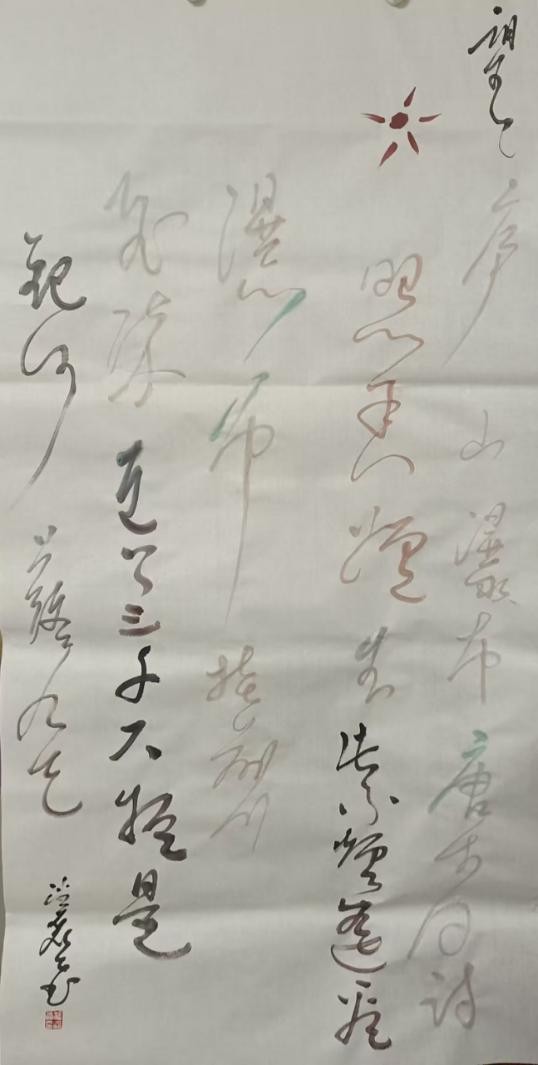 望庐山瀑布唐李白诗
照香炉生紫烟遥看
瀑布挂前川
飞流直下三千尺疑是
银河落九天